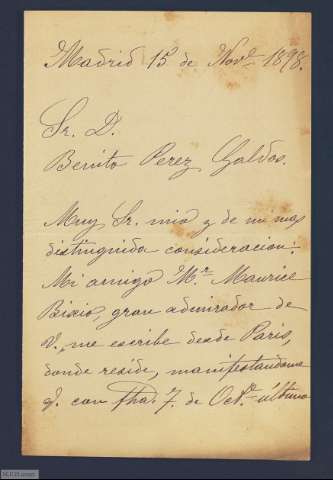 Madrid 15 de Nov.e 1898.
Sr. D.
Benito Perez Galdos.
Muy Sr. mio y de mi mas
distinguida consideracion:
Mi amigo Mr. Maurice
Bixio, gran admirador de
V., me escribe desde Paris,
donde reside, manifestandome
q. con fha 7. de Oct.e último